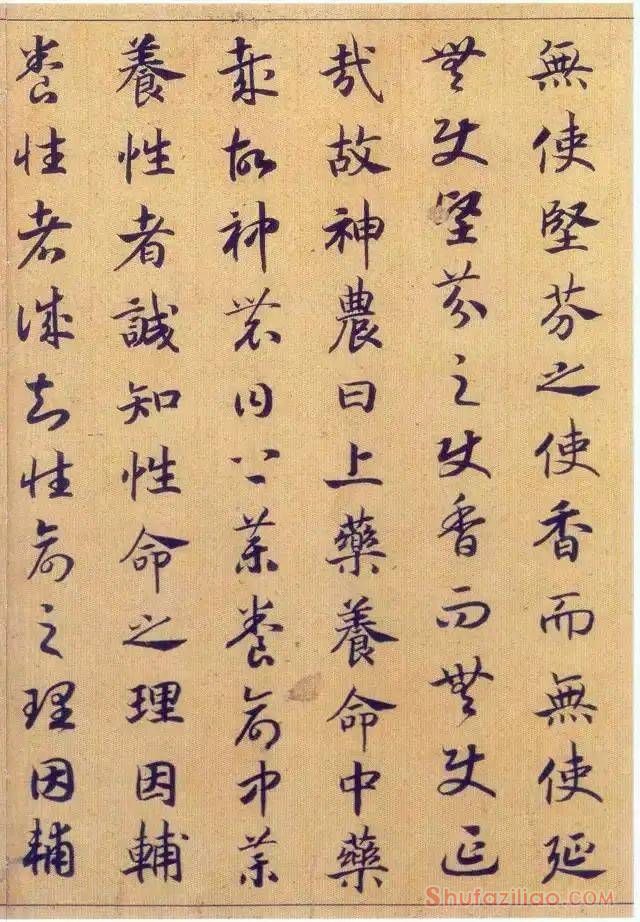 無使堅芬之使香而無使延
無使堅芬之使香而無使延
哉故神農曰上藥養命中藥
哉故神農曰上藥養命中藥
養性者誠知性命之理因輔
養性者誠知性命之理因輔
Shufaziliao.com